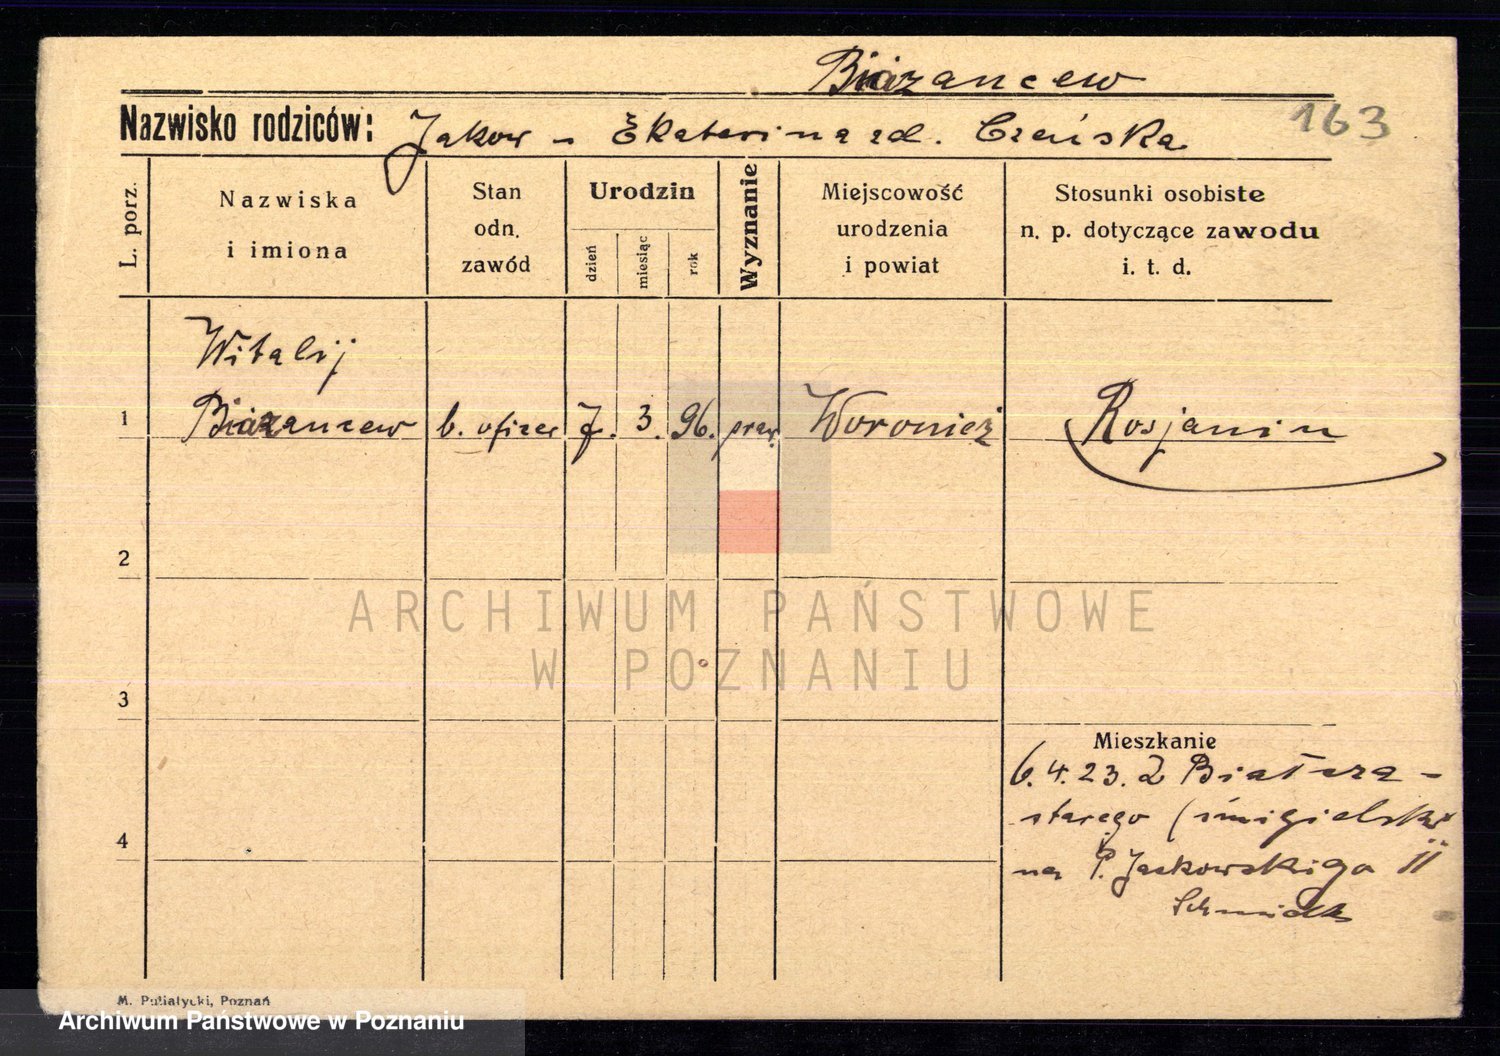 Biazancew
163
Nazwisko rodziców: Jakow - Ekaterina zd. Czeńska
L. porz.
Nazwiska
i imiona
Stan
odn.
zawód
Urodzin
dzień
miesiąc
rok
Wyznanie
Miejscowość
urodzenia
i powiat
Stosunki osobiste
n. p. dotyczące zawodu
i. t. d.
1
Witalij
Biazancew
b. oficer
7.
3.
96.
praw.
Woronież
Rosjanin
2
3
4
Mieszkanie
6.4.23. Z Białcza-
starego (śmigielski
na P. Jackowskiego II
Schmidt
ARCHIWUM PAŃSTWOWE
W POZNANIU
M. Putiatycki, Poznań
Archiwum Państwowe w Poznaniu